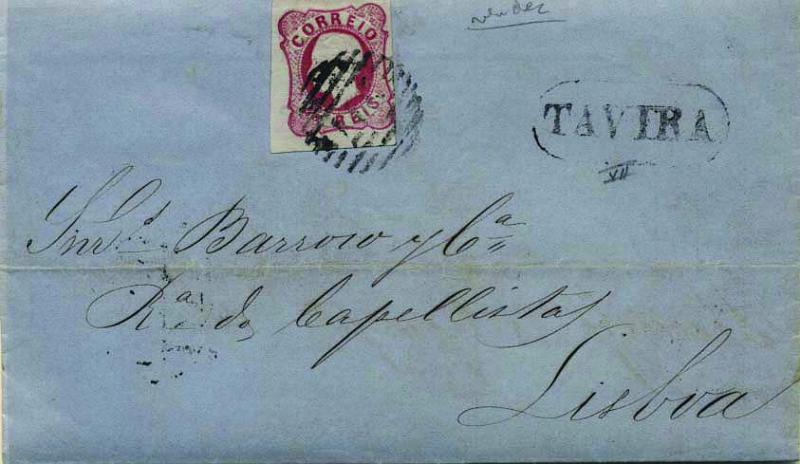 CORREIO
REIS.
TAVIRA
VII
Snr.es Barroso y Ca
Ra. dos Capellistas
Lisboa